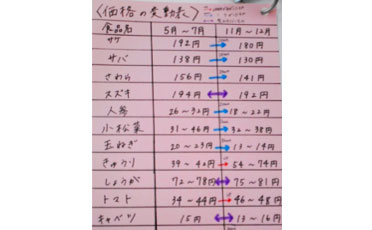 〈価格の変動表〉
食品名 5月～7月 11月～12月
サケ 192円 → 180円
サバ 138円 → 130円
さわら 156円 → 141円
スズキ 194円 ↔ 192円
人参 26～32円 → 18～22円
小松菜 31～46円 → 32～38円
玉ねぎ 20～23円 → 13～14円
きゅうり 39～42円 → 54～74円
しょうが 72～78円 ↔ 75～81円
トマト 34～44円 → 46～48円
キャベツ 15円 ↔ 13～16円